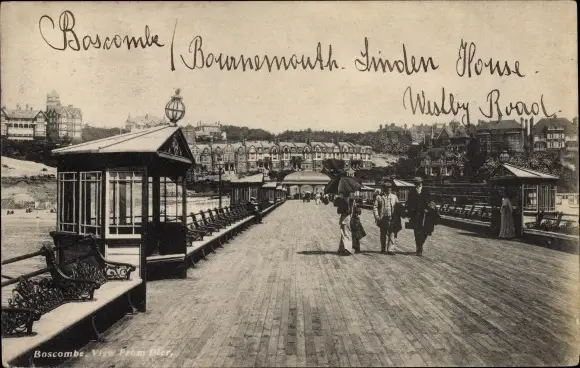 Boscombe / Bournemouth. Linden House.
Westby Road.
Boscombe, View From Pier,